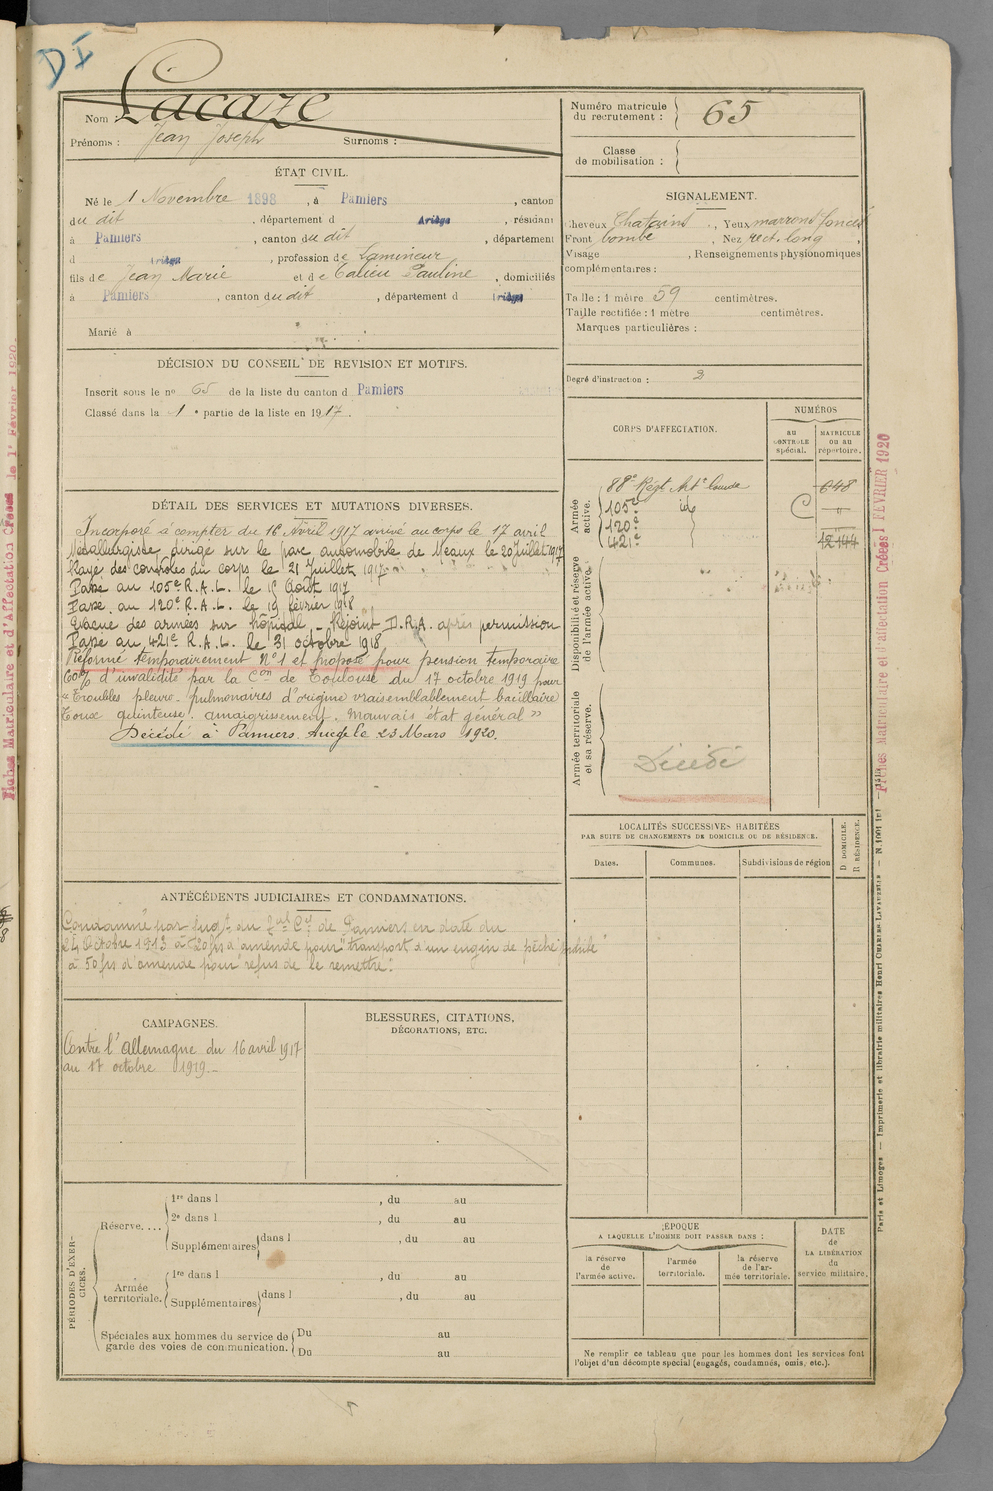 DI
Nom : Lacaze
Prénoms : Jean Joseph Surnoms :
Numéro matricule
du recrutement : 65
Classe
de mobilisation :
ÉTAT CIVIL.
Né le 1 Novembre 1898, à Pamiers, canton
du dit, département d Ariège, résidant
à Pamiers, canton du dit, département
d Ariège, profession de Lamineur
fils de Jean Marie et de Calieu Pauline, domiciliés
à Pamiers, canton du dit, département d Ariège
Marié à
SIGNALEMENT.
Cheveux Chatains, Yeux marrons foncés
Front bombé, Nez rect. long,
Visage, Renseignements physionomiques
complémentaires :
Taille : 1 mètre 59 centimètres.
Taille rectifiée : 1 mètre centimètres.
Marques particulières :
Degré d'instruction : 2
DÉCISION DU CONSEIL DE REVISION ET MOTIFS.
Inscrit sous le no 65 de la liste du canton d Pamiers
Classé dans la 1e partie de la liste en 1917.
CORPS D'AFFECTATION.
NUMÉROS
au
CONTROLE
spécial.
MATRICULE
ou au
répertoire.
Armée
active.
88e Régt Arte lourde 648
105e id C "
120e
421e 12144
Disponibilité et réserve
de l'armée active.
Armée territoriale
et sa réserve.
Décédé
DÉTAIL DES SERVICES ET MUTATIONS DIVERSES.
Incorporé à compter du 16 Avril 1917 arrivé au corps le 17 avril
Métallurgiste, dirigé sur le parc automobile de Meaux le 20 Juillet 1917
Rayé des contrôles du corps le 21 Juillet 1917
Passé au 105e R.A.L. le 1r Août 1917
Passé au 120e R.A.L. le 19 février 1918
Evacué des armées sur hôpital - Rejoint D.R.A. après permission
Passé au 421e R.A.L. le 31 octobre 1918
Réformé temporairement No 1 et proposé pour pension temporaire
60% d'invalidité par la Con de Toulouse du 17 octobre 1919 pour
"Troubles pleuro-pulmonaires d'origine vraisemblablement bacillaire
Toux quinteuse. amaigrissement. Mauvais état général"
Décédé à Pamiers Ariège le 23 Mars 1920.
LOCALITÉS SUCCESSIVES HABITÉES
PAR SUITE DE CHANGEMENTS DE DOMICILE OU DE RÉSIDENCE.
Dates.
Communes.
Subdivisions de région
D DOMICILE.
R RÉSIDENCE.
ANTÉCÉDENTS JUDICIAIRES ET CONDAMNATIONS.
Condamné par Jugt du Tal Cel de Pamiers en date du
24 Octobre 1913 à 20 frs d'amende pour "transport d'un engin de pêche prohibé"
à 50 frs d'amende pour "refus de le remettre".
CAMPAGNES.
Contre l'Allemagne du 16 avril 1917
au 17 octobre 1919.-
BLESSURES, CITATIONS,
DÉCORATIONS, ETC.
PÉRIODES D'EXER-
CICES.
Réserve....
1re dans l, du au
2e dans l, du au
Supplémentaires dans l, du au
Armée
territoriale.
1re dans l, du au
Supplémentaires dans l, du au
Spéciales aux hommes du service de
garde des voies de communication.
Du au
Du au
ÉPOQUE
A LAQUELLE L'HOMME DOIT PASSER DANS :
la réserve
de
l'armée active.
l'armée
territoriale.
la réserve
de l'ar-
mée territoriale.
DATE
de
LA LIBÉRATION
du
service militaire.
Ne remplir ce tableau que pour les hommes dont les services font
l'objet d'un décompte spécial (engagés, condamnés, omis, etc.).
Fiches Matriculaire et d'Affectation Créées le 1r Février 1920.
Fiches Matriculaire et d'affectation Créées 1 FÉVRIER 1920
Paris et Limoges — Imprimerie et librairie militaires Henri CHARLES-LAVAUZELLE